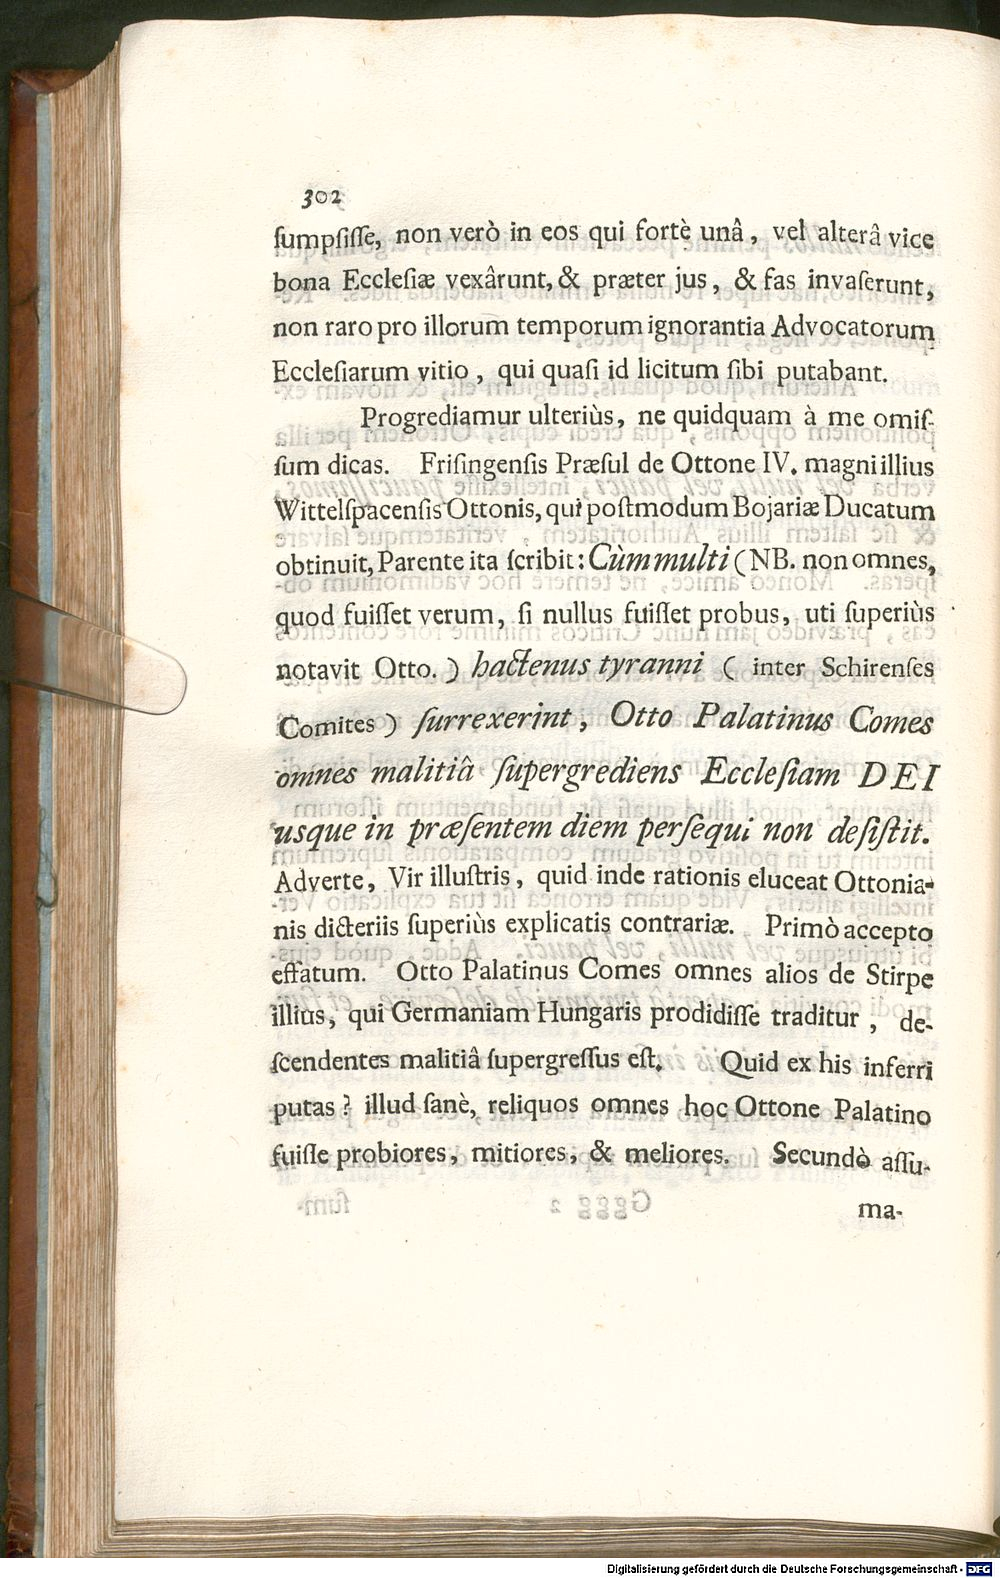 302
sumpsisse, non verò in eos qui fortè unâ, vel alterâ vice
bona Ecclesiæ vexârunt, & præter jus, & fas invaserunt,
non raro pro illorum temporum ignorantia Advocatorum
Ecclesiarum vitio, qui quasi id licitum sibi putabant.
Progrediamur ulteriùs, ne quidquam à me omis-
sum dicas. Frisingensis Præsul de Ottone IV. magni illius
Wittelspacensis Ottonis, qui postmodum Bojariæ Ducatum
obtinuit, Parente ita scribit: Cùm multi (NB. non omnes,
quod fuisset verum, si nullus fuisset probus, uti superiùs
notavit Otto.) hactenus tyranni (inter Schirenses
Comites) surrexerint, Otto Palatinus Comes
omnes malitiâ supergrediens Ecclesiam DEI
usque in præsentem diem persequi non desistit.
Adverte, Vir illustris, quid inde rationis eluceat Ottonia-
nis dicteriis superiùs explicatis contrariæ. Primò accepto
effatum. Otto Palatinus Comes omnes alios de Stirpe
illius, qui Germaniam Hungaris prodidisse traditur, de-
scendentes malitiâ supergressus est. Quid ex his inferri
putas? illud sanè, reliquos omnes hoc Ottone Palatino
fuisse probiores, mitiores, & meliores. Secundò assu-
ma-
Digitalisierung gefördert durch die Deutsche Forschungsgemeinschaft - DFG